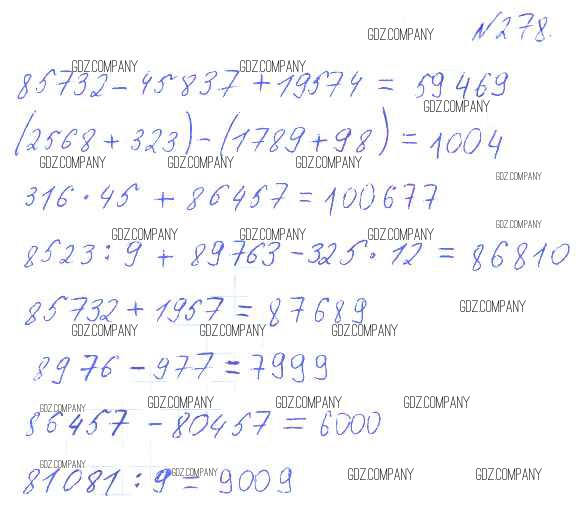 GDZ.COMPANY №278.
GDZ.COMPANY GDZ.COMPANY
85732 - 45837 + 19574 = 59469
GDZ.COMPANY
(2568 + 323) - (1789 + 98) = 1004
GDZ.COMPANY GDZ.COMPANY GDZ.COMPANY
GDZ.COMPANY
316 · 45 + 86457 = 100677
GDZ.COMPANY
GDZ.COMPANY GDZ.COMPANY GDZ.COMPANY
8523 : 9 + 89763 - 325 · 12 = 86810
85732 + 1957 = 87689
GDZ.COMPANY
GDZ.COMPANY GDZ.COMPANY GDZ.COMPANY
8976 - 977 = 7999
GDZ.COMPANY GDZ.COMPANY GDZ.COMPANY GDZ.COMPANY
86457 - 80457 = 6000
GDZ.COMPANY GDZ.COMPANY GDZ.COMPANY GDZ.COMPANY
81081 : 9 = 9009